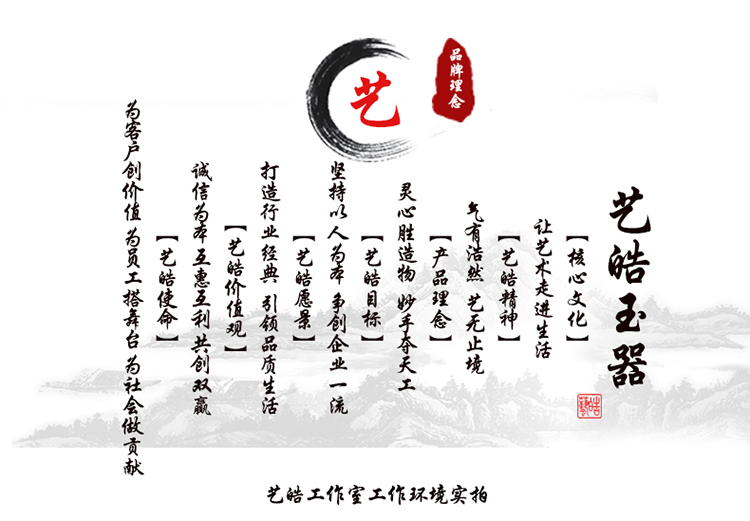 艺
品牌理念
艺皓玉器
【核心文化】
让艺术走进生活
【艺皓精神】
气有浩然 艺无止境
【产品理念】
灵心胜造物 妙手夺天工
【艺皓目标】
坚持以人为本 争创企业一流
【艺皓愿景】
打造行业经典 引领品质生活
【艺皓价值观】
诚信为本 互惠互利 共创双赢
【艺皓使命】
为客户创价值 为员工搭舞台 为社会做贡献
艺皓工作室工作环境实拍